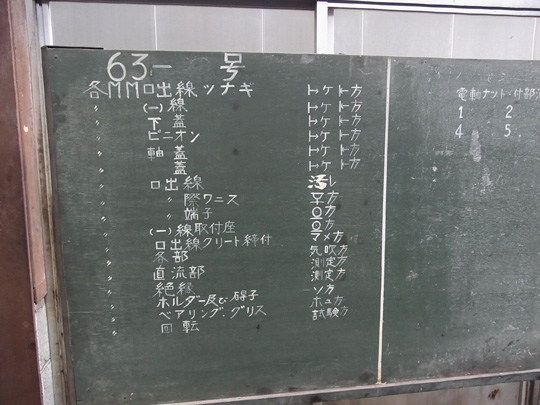 63- 号
各MM口出線ツナギ トケト方
〃 (一)線 トケト方
〃 下蓋 トケト方
〃 ピニオン トケト方
〃 軸蓋 トケト方
〃 蓋 トケト方
〃 口出線 汚レ
〃 〃 際ワニス 方
〃 〃 端子 方
〃 (一)線取付座 方
〃 口出線クリート締付 マメ方
〃 各部 気吹方
〃 直流部 測定方
〃 絶縁 測定方
〃 ホルダー及び碍子 ソ方
〃 ベアリング・グリス ホユ方
〃 回転 試験方
電動ナット・付部
1 2
4 5